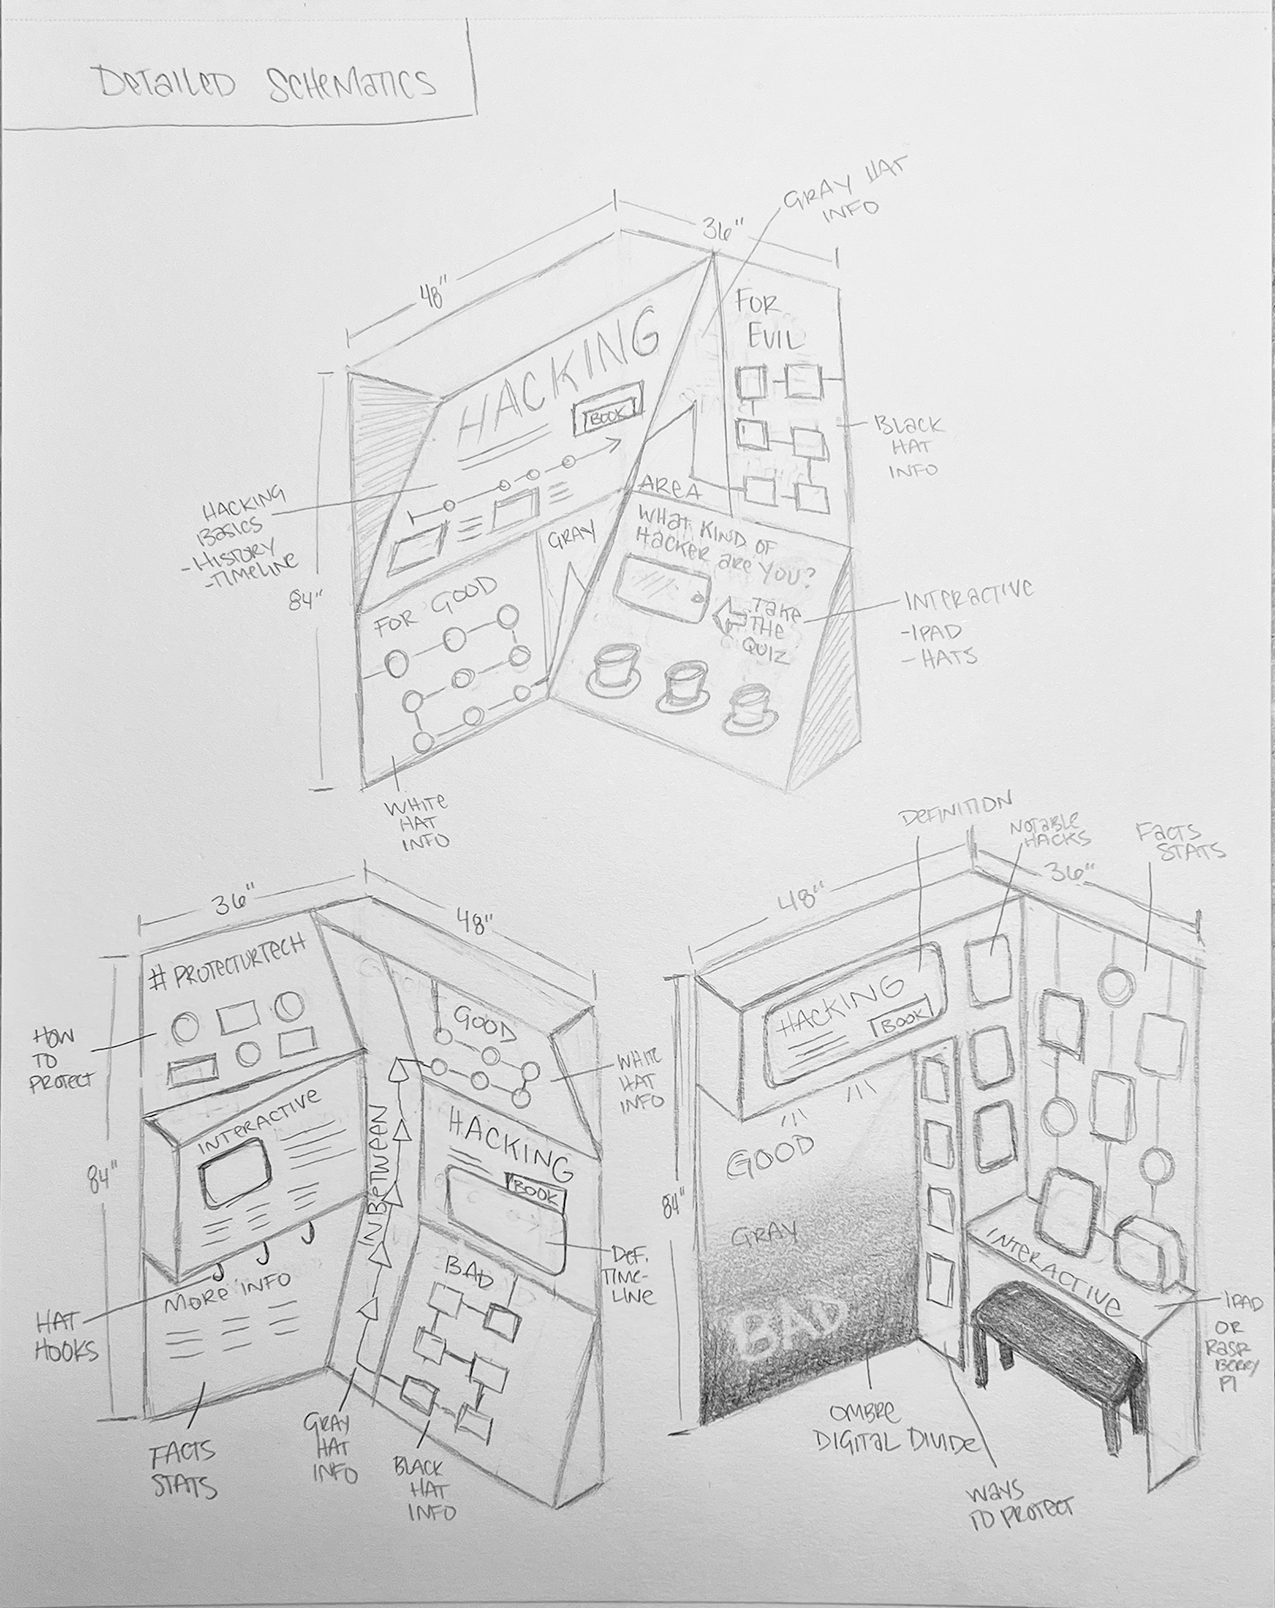 DETAILED SCHEMATICS
48"
36"
GRAY HAT
INFO
HACKING
BOOK
FOR
EVIL
BLACK
HAT
INFO
HACKING
BASICS
-HISTORY
-TIMELINE
84"
AREA
GRAY
WHAT KIND OF
HACKER ARE YOU?
TAKE
THE
QUIZ
INTERACTIVE
-IPAD
-HATS
FOR GOOD
WHITE
HAT
INFO
36"
48"
#PROTECTURTECH
HOW
TO
PROTECT
84"
INTERACTIVE
INBETWEEN
GOOD
WHITE
HAT
INFO
HACKING
BOOK
DEF.
TIME-
LINE
BAD
MORE INFO
HAT
HOOKS
FACTS
STATS
GRAY
HAT
INFO
BLACK
HAT
INFO
DEFINITION
NOTABLE
HACKS
FACTS
STATS
48"
36"
HACKING
BOOK
GOOD
GRAY
BAD
84"
INTERACTIVE
IPAD
OR
RASP
BERRY
PI
OMBRE
DIGITAL DIVIDE
WAYS
TO PROTECT